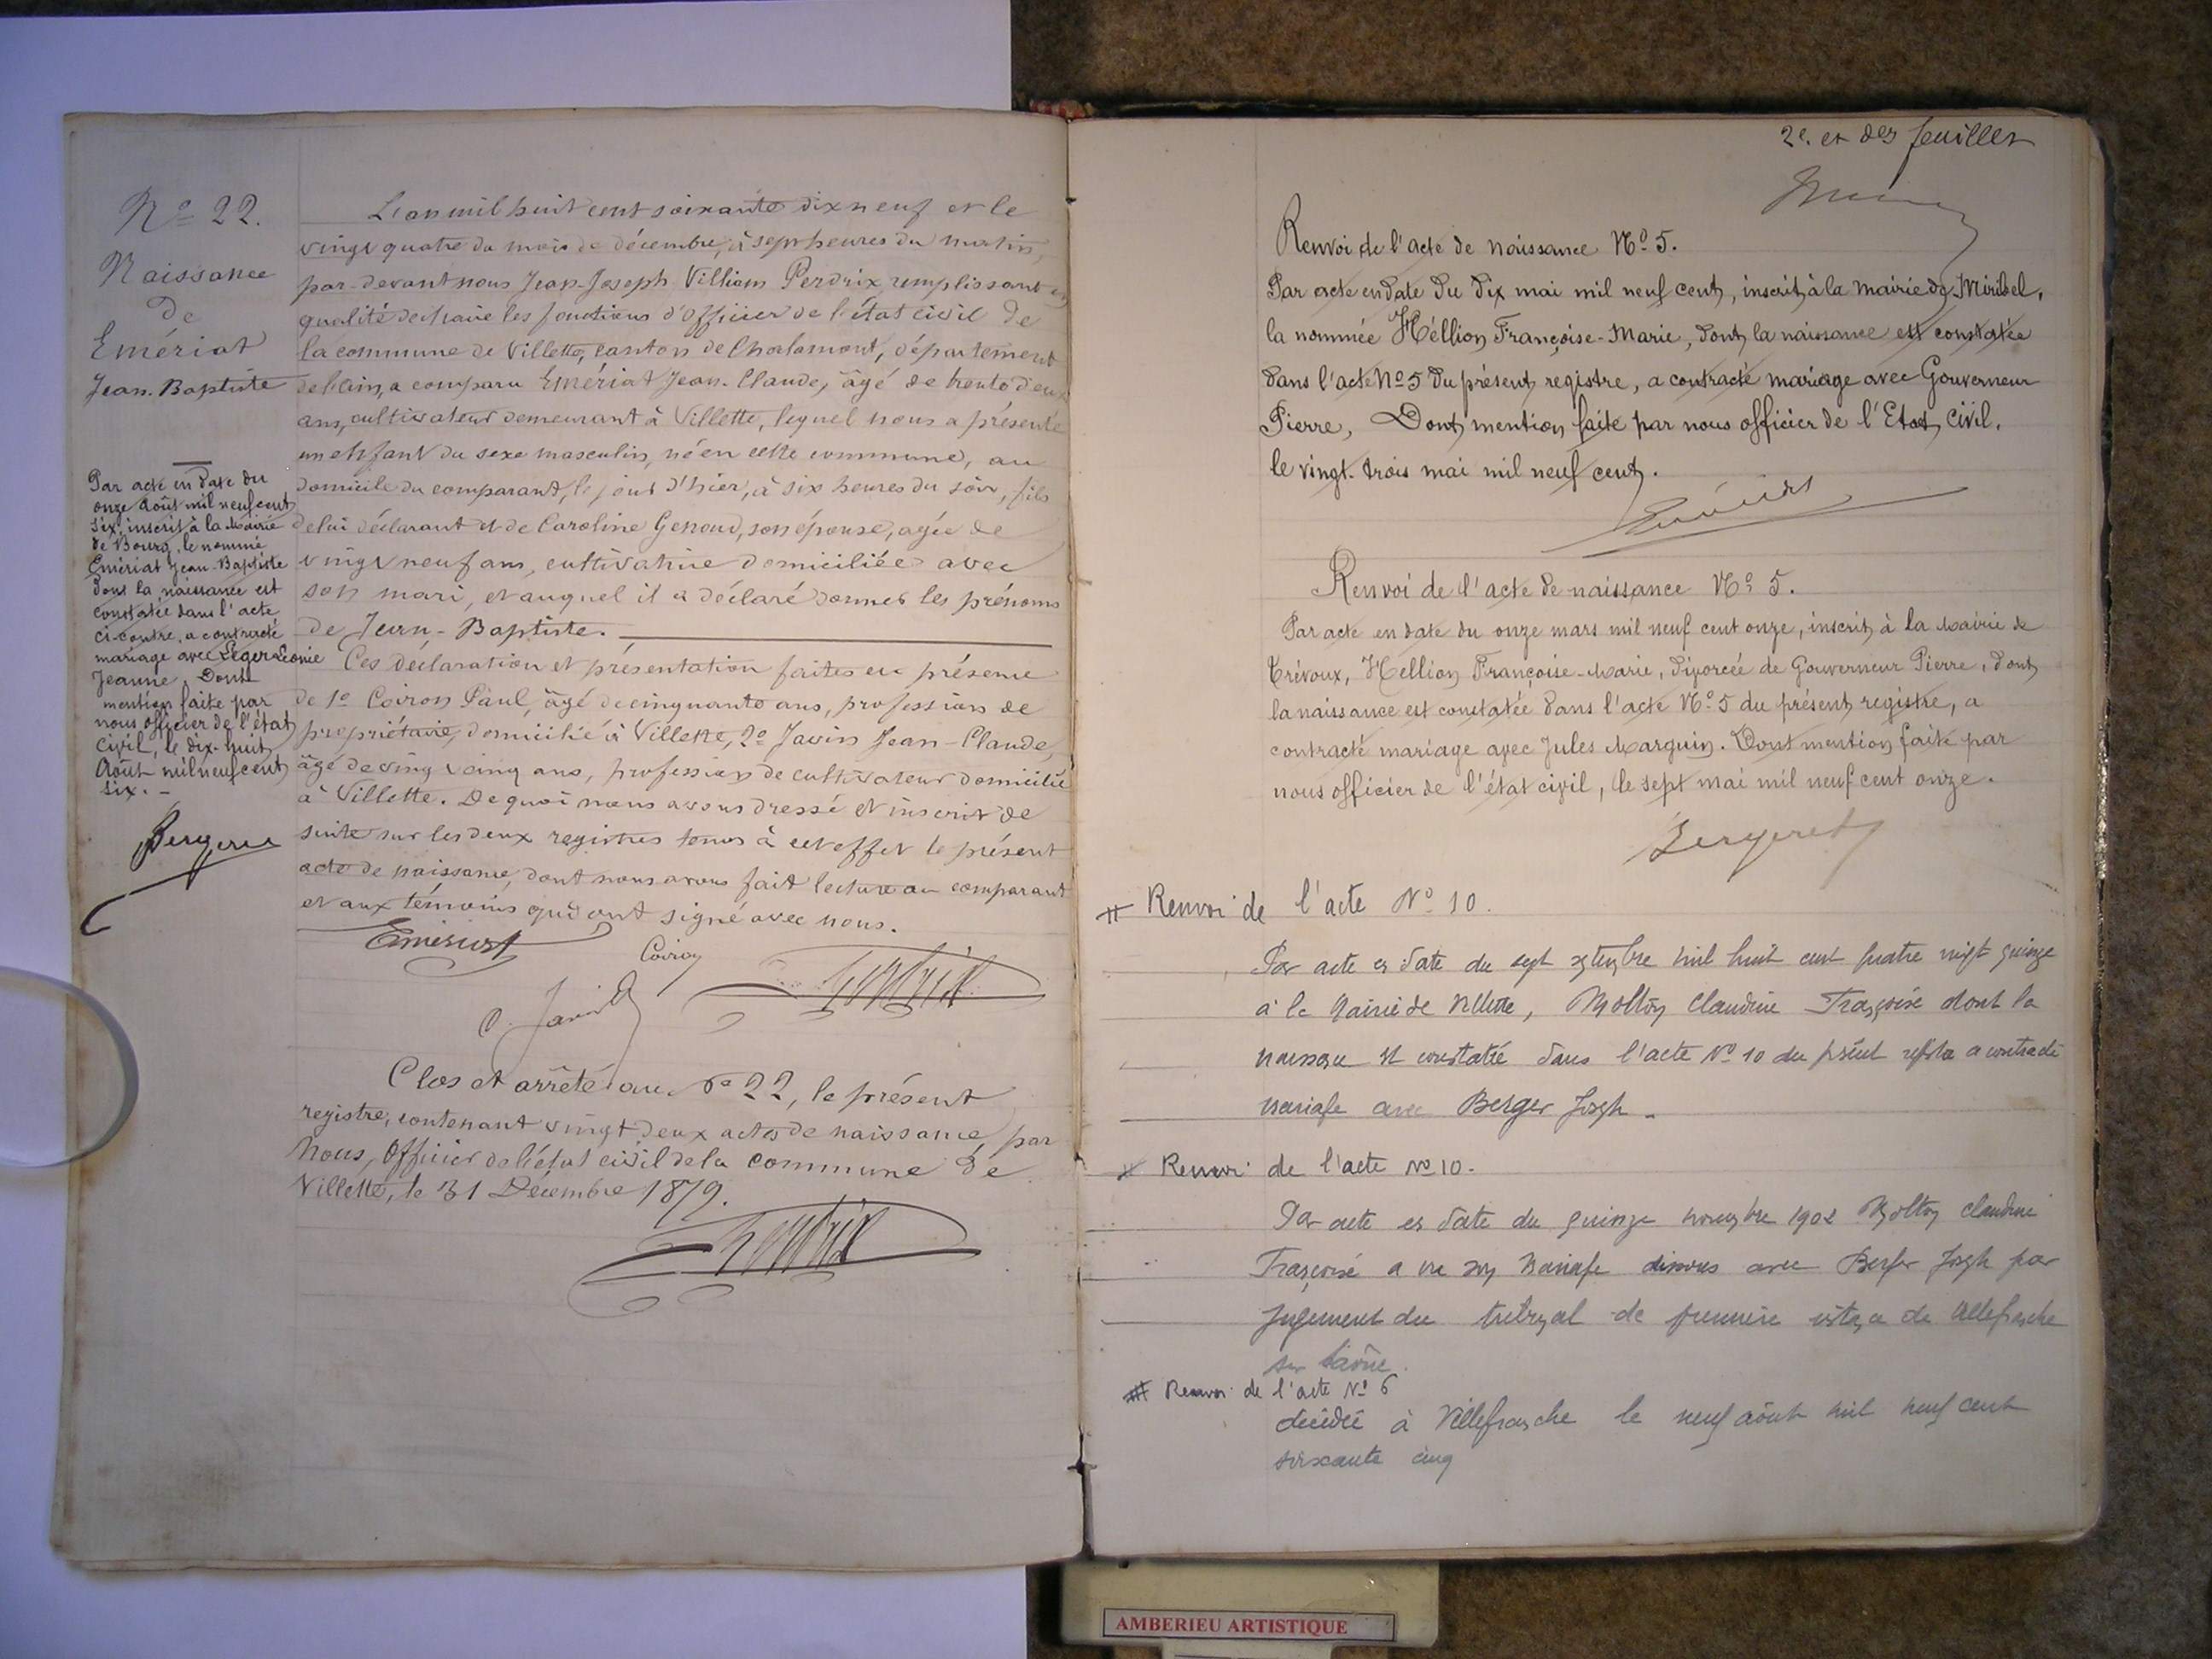 No 22.
Naissance
de
Emériat
Jean-Baptiste
L'an mil huit cent soixante dix neuf et le
vingt quatre du mois de décembre, à sept heures du matin,
par-devant nous Jean-Joseph Villiam Perdrix remplissant en
qualité de Maire les fonctions d'Officier de l'état civil de
la commune de Villette, canton de Chalamont, département
de l'Ain, a comparu Emériat Jean-Claude, âgé de trente deux
ans, cultivateur demeurant à Villette, lequel nous a présenté
un enfant du sexe masculin, né en cette commune, au
domicile du comparant, le jour d'hier, à six heures du soir, fils
de lui déclarant et de Caroline Genoud, son épouse, agée de
vingt neuf ans, cultivatrice domiciliée avec
son mari, et auquel il a déclaré donner les prénoms
de Jean-Baptiste.
Ces déclaration et présentation faites en présence
de 1o Coiron Paul, âgé de cinquante ans, profession de
propriétaire, domicilié à Villette, 2o Javin Jean-Claude,
âgé de vingt cinq ans, profession de cultivateur domicilié
à Villette. De quoi nous avons dressé et inscrit de
suite sur les deux registres tenus à cet effet le présent
acte de naissance, dont nous avons fait lecture au comparant
et aux témoins qui ont signé avec nous.
Emériat
Coiron
C. Javin
Perdrix
Par acte en date du
onze Août mil neuf cent
six, inscrit à la Mairie
de Bourg, le nommé
Emériat Jean-Baptiste
dont la naissance est
constatée dans l'acte
ci-contre, a contracté
mariage avec Léger Léonie
Jeanne. Dont
mention faite par
nous officier de l'état
civil, le dix-huit
Août mil neuf cent
six. -
Bergeret
Clos et arrêté au No 22, le présent
registre, contenant vingt deux actes de naissance, par
Nous, Officier de l'état civil de la commune de
Villette, le 31 Décembre 1879.
Perdrix
2e. et der feuillet
Renvoi de l'acte de naissance No 5.
Par acte en date du dix mai mil neuf cent, inscrit à la mairie de Miribel,
la nommée Héllion Françoise-Marie, dont la naissance est constatée
dans l'acte No 5 du présent registre, a contracté mariage avec Gouverneur
Pierre, Dont mention faite par nous officier de l'Etat civil,
le vingt-trois mai mil neuf cent.
Renvoi de l'acte de naissance No 5.
Par acte en date du onze mars mil neuf cent onze, inscrit à la Mairie de
Trévoux, Hellion Françoise-Marie, divorcée de Gouverneur Pierre, dont
la naissance est constatée dans l'acte No 5 du présent registre, a
contracté mariage avec Jules Marguin. Dont mention faite par
nous officier de l'état civil, le sept mai mil neuf cent onze.
Bergeret
# Renvoi de l'acte No 10.
Par acte en date du sept septembre mil huit cent quatre vingt quinze
à la Mairie de Villette, Molton Claudine Françoise dont la
naissance est constatée dans l'acte No 10 du présent registre a contracté
mariage avec Berger Joseph.
Renvoi de l'acte No 10.
Par acte en date du quinze novembre 1902 Molton Claudine
Françoise a vu son mariage dissous avec Berger Joseph par
jugement du tribunal de première instance de Villefranche
sur Saône.
# Renvoi de l'acte No 6
décédé à Villefranche le neuf août mil neuf cent
soixante cinq
AMBERIEU ARTISTIQUE